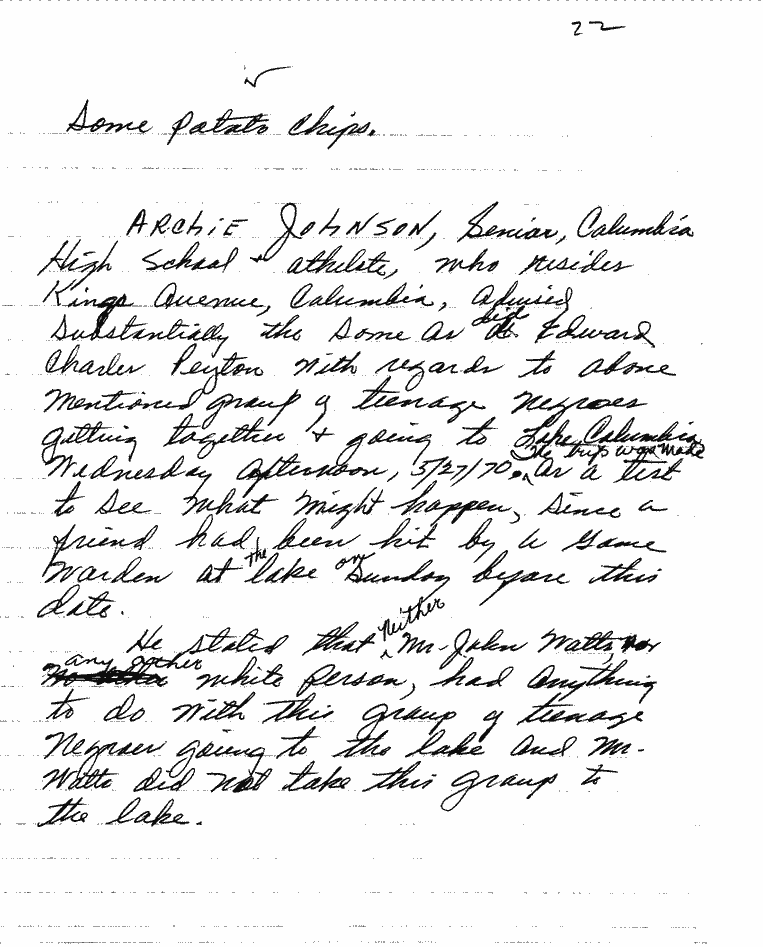 22
Some potato chips.
ARCHIE JOHNSON, Senior, Columbia
High School + athlete, who resides
Kings Avenue, Columbia, advised
substantially the same as did Edward
Charles Peyton with regards to above
mentioned group of teenage negroes
getting together + going to Lake Columbia
Wednesday afternoon, 5/27/70. The trip was made as a test
to see what might happen, since a
friend had been hit by a Game
Warden at the lake on Sunday before this
date.
He stated that neither Mr. John Watts, nor
any other white person, had anything
to do with this group of teenage
Negroes going to the lake and Mr.
Watts did not take this group to
the lake.